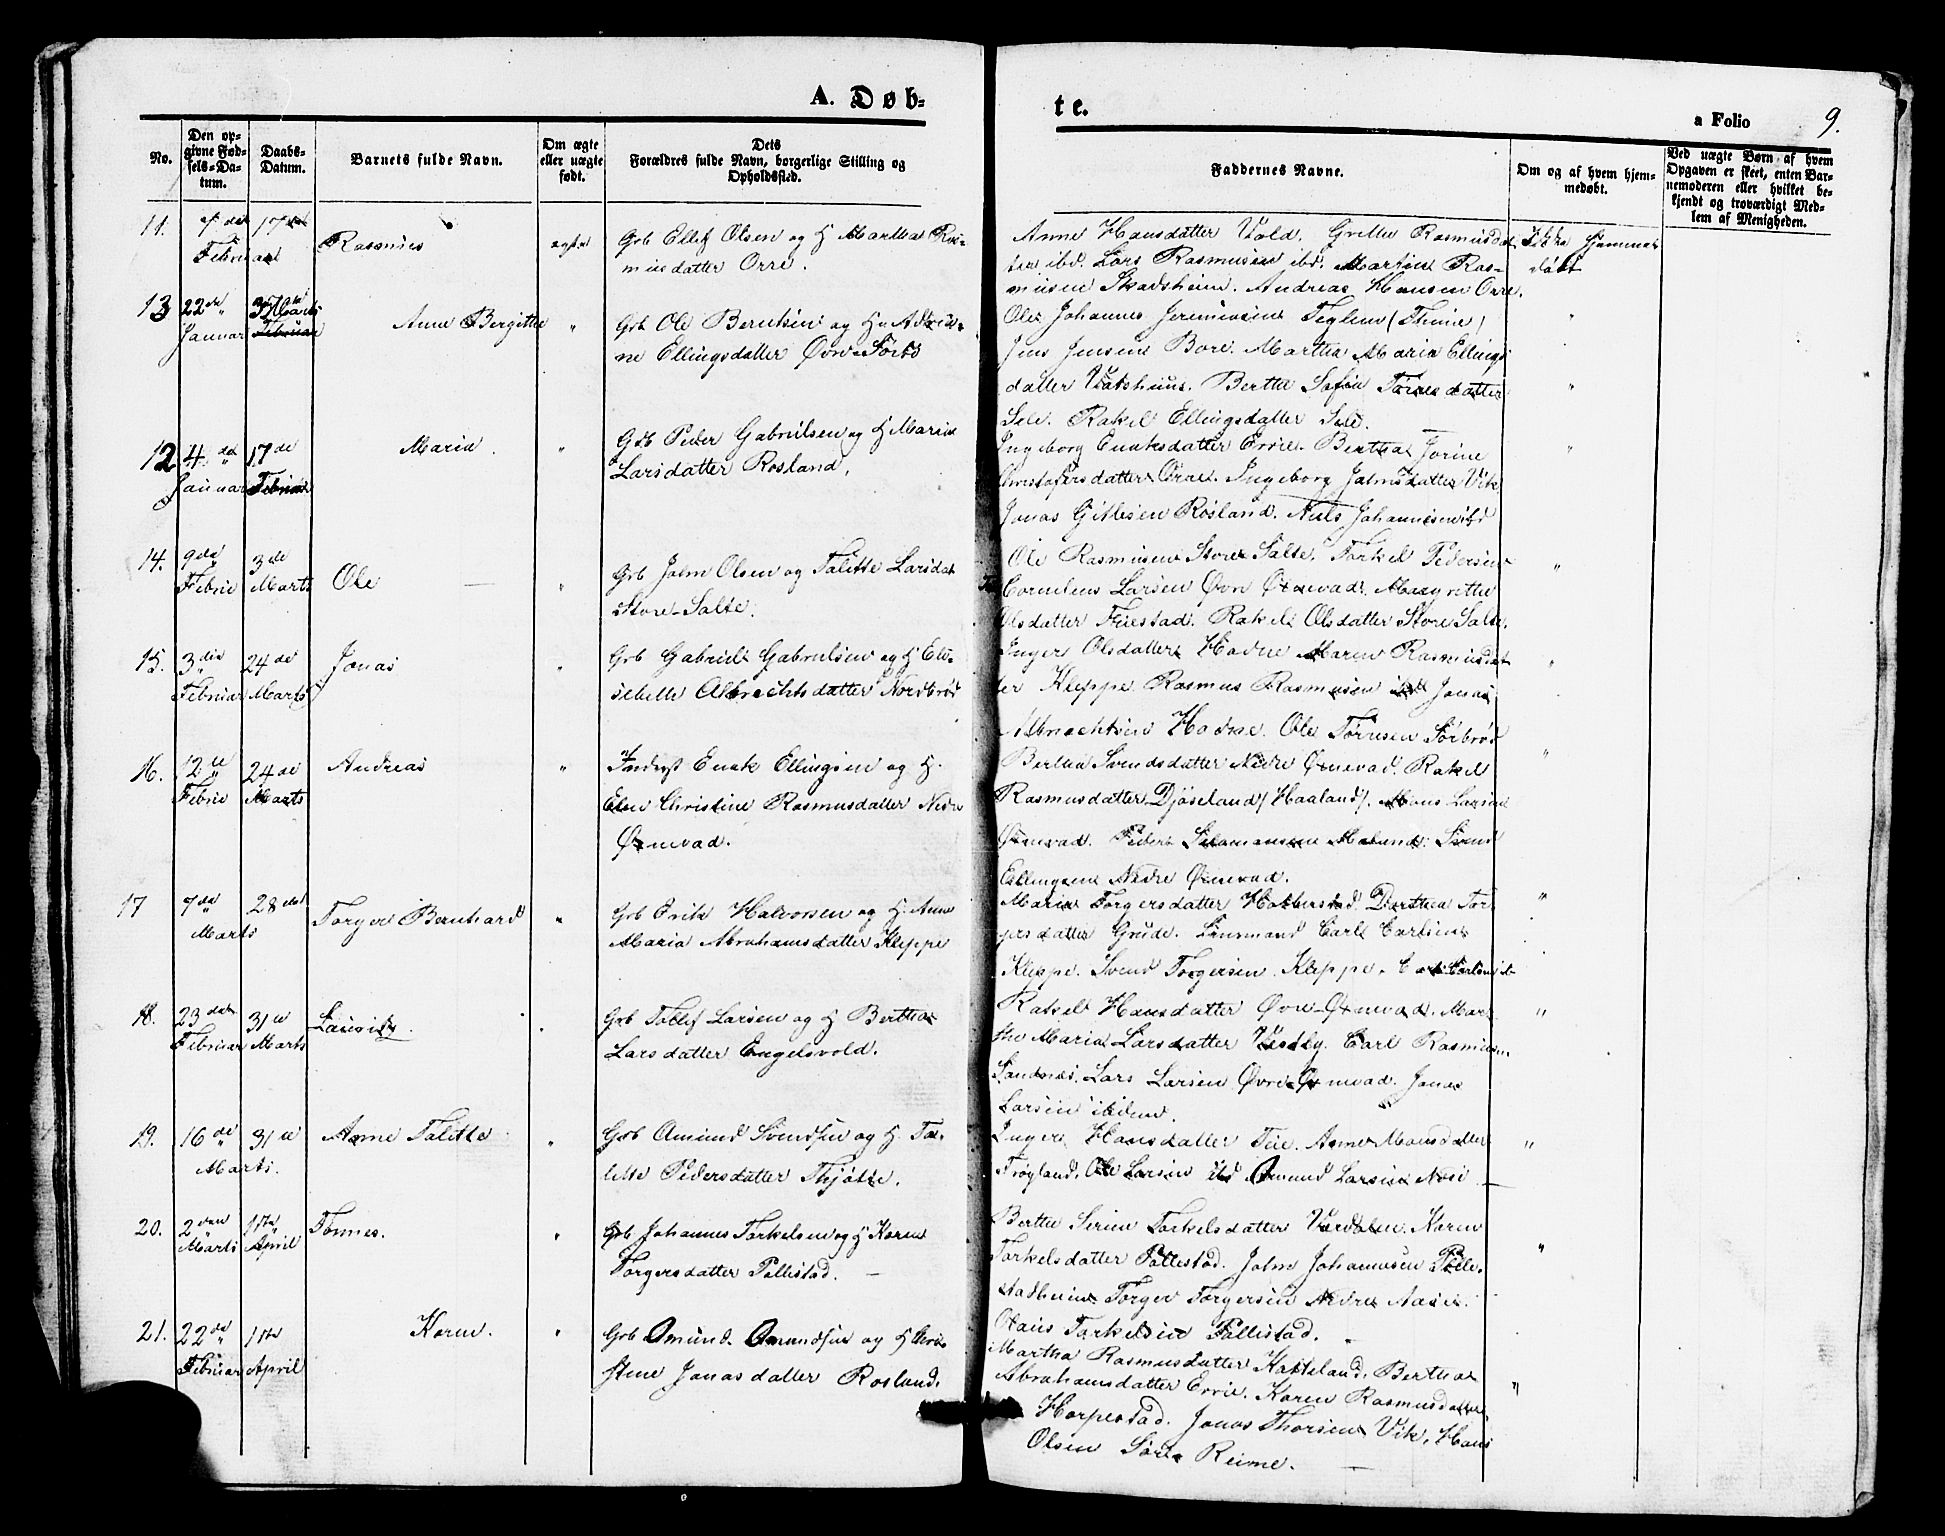 A. Døb-
te.
a Folio 9.
No.
Den op-
givne Fød-
sels-Da-
tum.
Daabs-
Datum.
Barnets fulde Navn.
Om ægte
eller uægte
født.
Dets
Forældres fulde Navn, borgerlige Stilling og
Opholdssted.
Faddernes Navne.
Om og af hvem hjem-
medøbt.
Ved uægte Børn af hvem
Opgaven er skeet, enten Bar-
nemoderen eller hvilket be-
kjendt og troværdigt Med-
lem af Menigheden.
11.
17de
Februar
Rasmus
ægte
Grb Ellef Olsen og H Martha Ras-
musdatter Orre.
Anne Hansdatter Vold. Grethe Rasmusdat
ter ibd. Lars Rasmusen ibd. Martin Ras-
musen Skadsheim. Andreas Hansen Orre.
Ikke hjemme
døbt
13 22de 3die Marts
Januar Februar
Anne Bergitte "
Grb Ole Berntsen og H. Adri-
ne Ellingsdatter Øvre
Ole Johannes Jeremiasen Teglem (Thime)
Jens Jensen Bore. Martha Maria Ellings
datter Vatshuus. Bertha Sofie datter
Sele. Rakel Ellingsdatter Sele. "
12 4de 17de
Januar Februar
Maria. "
Grb Peder Gabrielsen og H Maria
Larsdatter Rosland.
Ingeborg Enoksdatter Ervie. Bertha Jorine
Christofersdatter Orre. Ingeborg Jahnsdatter Vik
Jonas Gitlesen Rosland. Niels Johannesen ibd "
14. 9de 3de
Februar Marts
Ole "
Grb Jahn Olsen og Talitte Larsdat
Store-Salte.
Ole Rasmusen Store Salte. Torkel Pedersen
Cornelius Larsen Øvre Øxnevad. Margrethe
Olsdatter Friestad. Rakel Olsdatter Store Salte. "
15. 3die 24de
Februar Marts
Jonas "
Grb Gabriel Gabrielsen og H Eli-
sebethe Albrechtsdatter Nordbrød
Inger Olsdatter Hodne Maren Rasmusdat
ter Kleppe. Rasmus Rasmusen ibd Jonas
Albrechtsen Hodne. Ole Tørresen Sørbrød "
16. 12te 24de
Februar Marts
Andreas "
Inderst Enok Ellingsen og H.
Elen Christine Rasmusdatter Nedre
Øxnevad.
Bertha Svendsdatter Nedre Øxnevad. Rakel
Rasmusdatter Djøseland (Haaland). Mons Larsen
Øxnevad. Peder Salamonsen Malund. Svend
Ellingsen Nedre Øxnevad. "
17 7de 28de
Marts
Torger Bernhard "
Grb Erik Halvorsen og H. Anne
Maria Abrahamsdatter Kleppe
Maria Torgersdatter Dorthea Tor-
gersdatter Grude. Lensmand Carl Carlsen
Kleppe. Svend Torgersen Kleppe. "
18. 23de 31te
Februar Marts
Lauritz.
Grb Tollef Larsen og H Bertha
Larsdatter Engelsvold.
Rakel Hansdatter Øvre-Øxnevad. Mar-
the Maria Larsdatter Vestly. Carl Rasmusen
Sandnæs. Lars Larsen Øvre-Øxnevad. Jonas
Larsen ibidem. "
19. 16de 31te
Marts.
Anne Talitte "
Grb Amund Svendsen og H. Ta-
litte Pedersdatter Thjøtte.
Inger Hansdatter Tue. Anne Monsdatter
Frøyland. Ole Larsen ibd Amund Larsen Næse "
20. 2den 1ste
Marts April
Tønnes. "
Grb Johannes Torkelsen og H Karen
Torgersdatter Pallestad.
Berthe Serine Torkelsdatter Vardalen. Karen
Torkelsdatter Pallestad. Jahn Johannesen Pile-
stadheim. Torger Torgersen Nedre Aasen.
Olaus Torkelsen Pallestad. "
21. 22de 1ste
Februar April
Karen. "
Grb Omund Omundsen og H Kri-
stene Jonasdatter Rosland.
Martha Rasmusdatter Katteland. Bertha
Abrahamsdatter Ervie. Karen Rasmusdatter
Horpestad. Jonas Thorsen Vik. Hans
Olsen Søre Reime. "